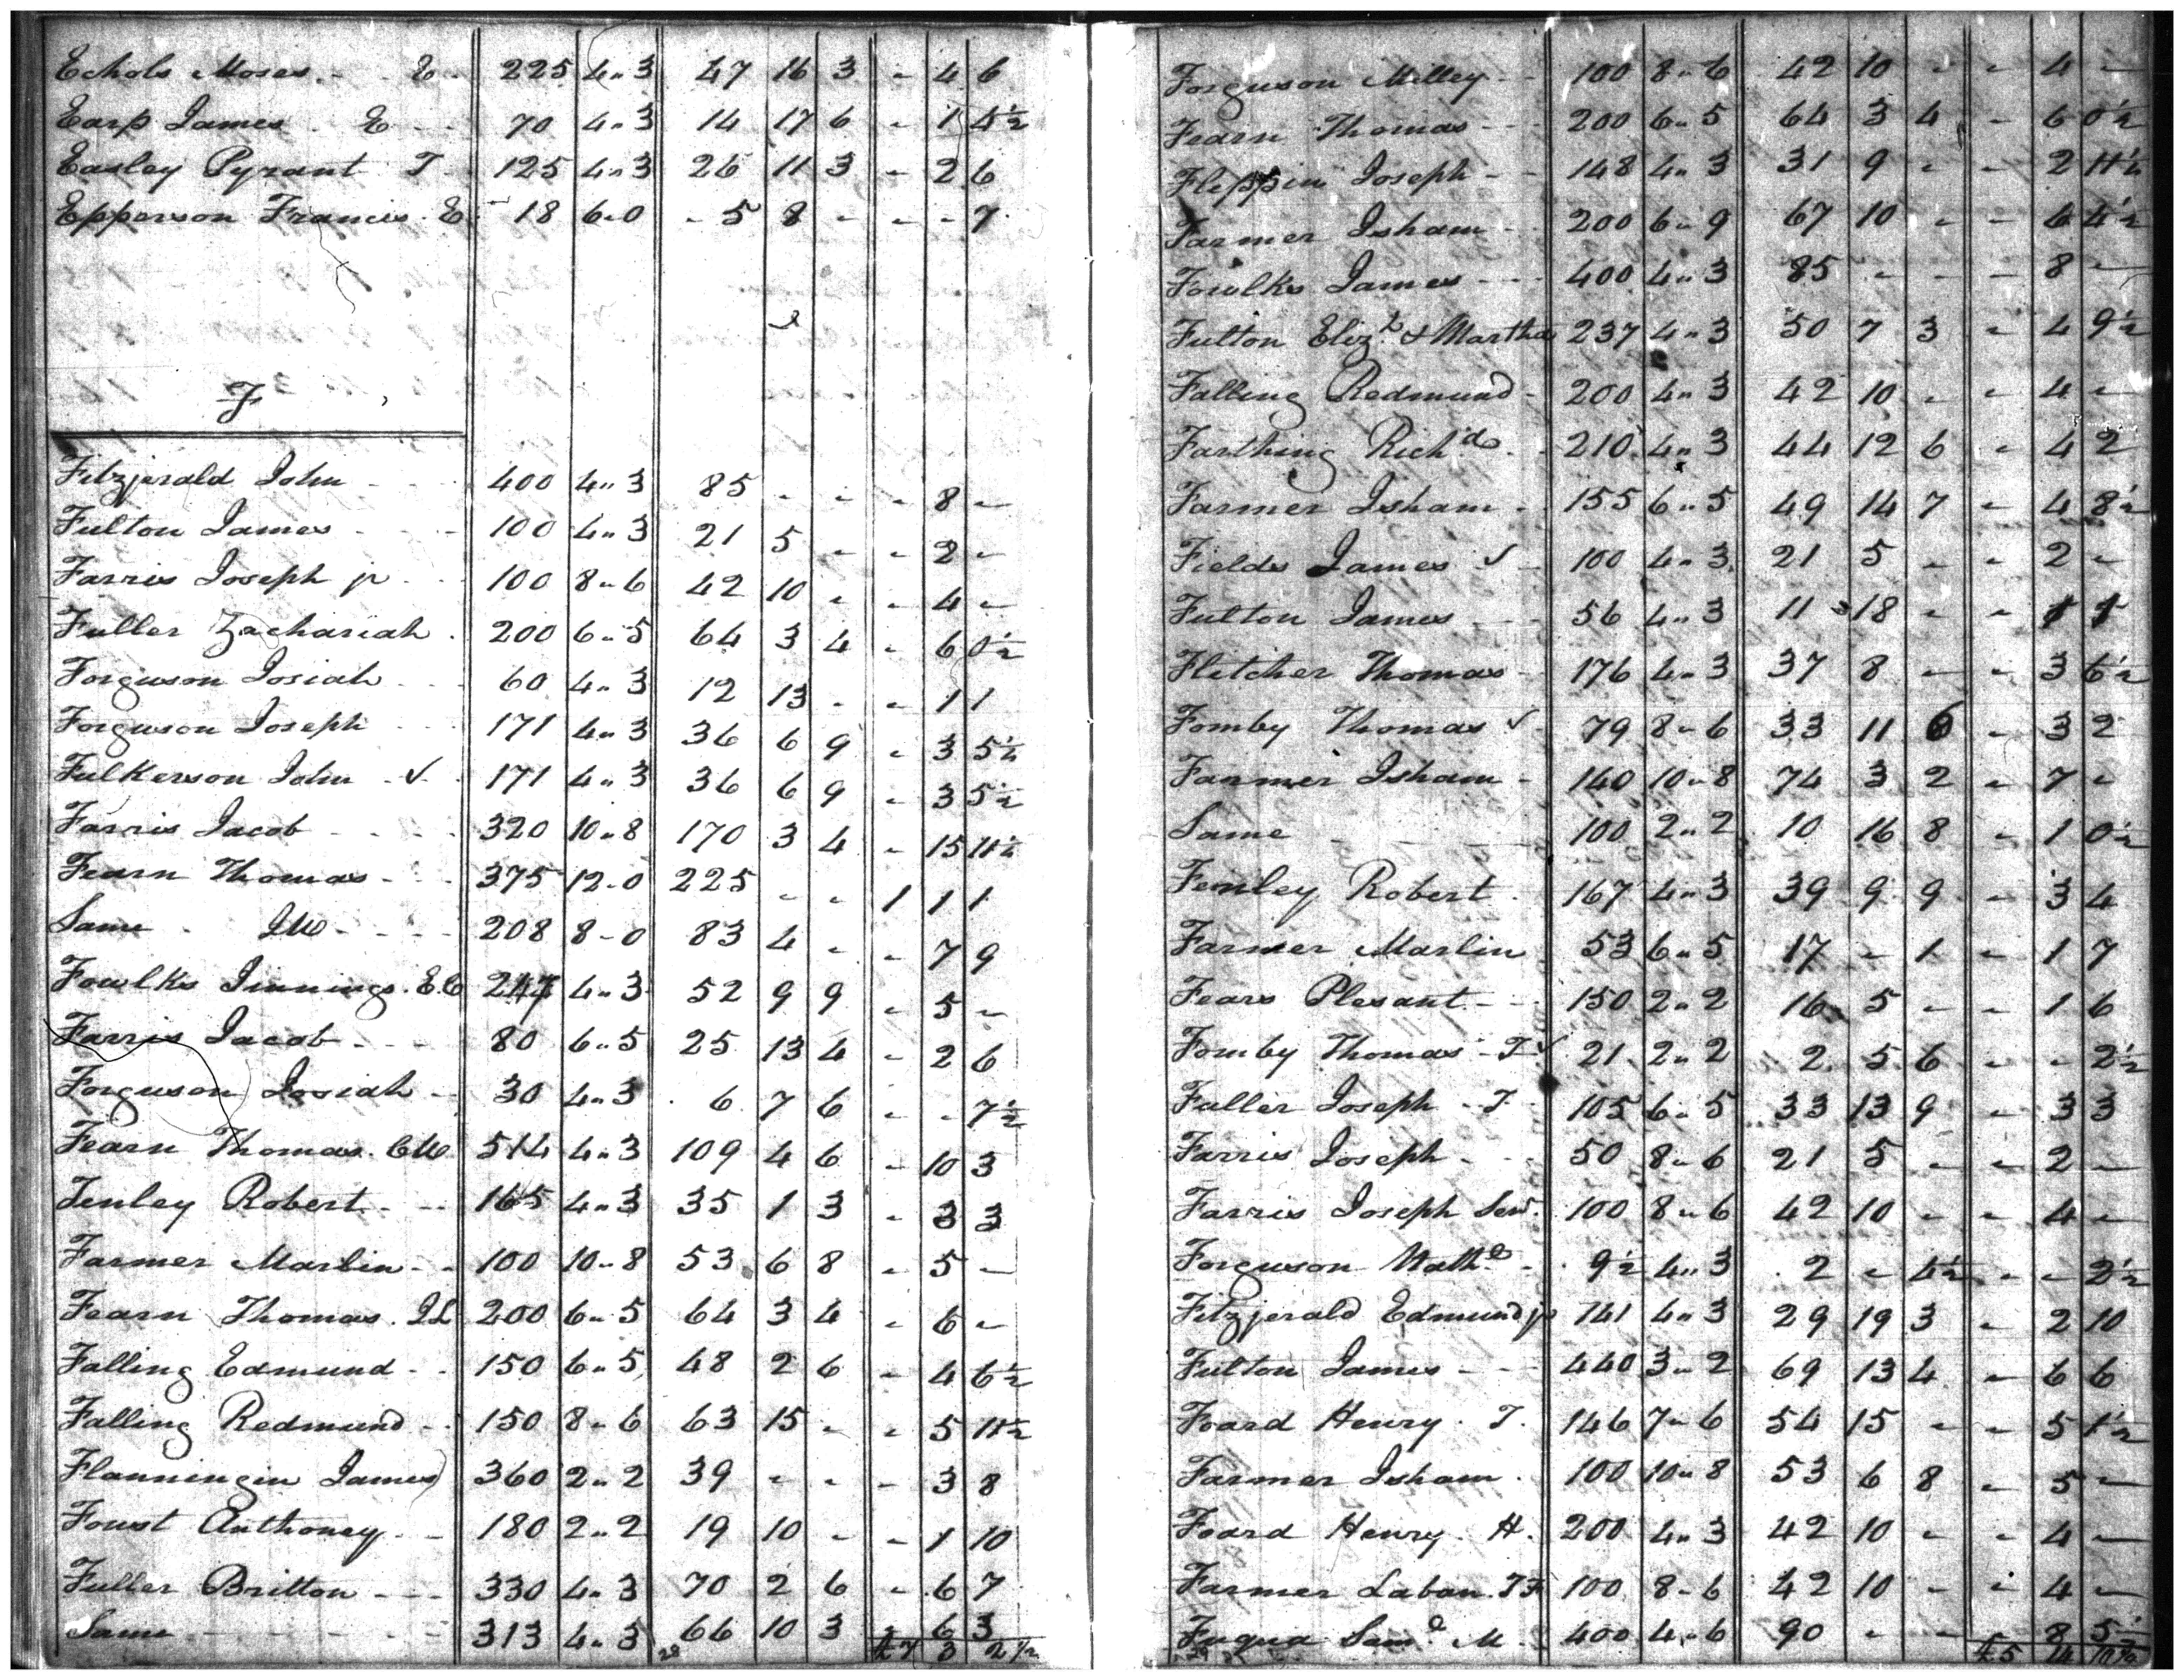 Echols Moses - E - 225 4"3 47 16 3 - 4 6
Earp James . E - 70 4"3 14 17 6 - 1 4½
Easley Pyrant T 125 4"3 26 11 3 - 2 6
Epperson Francis . E 18 6-0 - 5 8 - - - 7
F
Fitzjerald John 400 4"3 85 - - - 8 -
Fulton James 100 4"3 21 5 - - 2 -
Farris Joseph jr 100 8-6 42 10 - - 4 -
Fuller Zachariah 200 6"5 64 3 4 - 6 0½
Forguson Josiah 60 4"3 12 13 - - 1 1
Forguson Joseph 171 4"3 36 6 9 - 3 5½
Fulkerson John ✓ 171 4"3 36 6 9 - 3 5½
Farris Jacob 320 10"8 170 3 4 - 15 11½
Fearn Thomas 375 12-0 225 - - 1 1 1
Same 208 8-0 83 4 - - 7 9
Fowlks Jennings . E.C 247 4"3 52 9 9 - 5 -
Farris Jacob 80 6"5 25 13 4 - 2 6
Forguson Josiah 30 4"3 6 7 6 - - 7½
Fearn Thomas . 514 4"3 109 4 6 - 10 3
Fenley Robert 165 4"3 35 1 3 - 3 3
Farmer Marlin 100 10"8 53 6 8 - 5 -
Fearn Thomas . 200 6"5 64 3 4 - 6 -
Falling Edmund 150 6"5 48 2 6 - 4 6½
Falling Redmund 150 8-6 63 15 - - 5 11½
Flanningin James 360 2"2 39 - - - 3 8
Foust Anthoney 180 2"2 19 10 - - 1 10
Fuller Britton 330 4"3 70 2 6 - 6 7
Same 313 4"3 66 10 3 - 6 3
28 £7 3 2½
Forguson Milley 100 8"6 42 10 - - 4 -
Fearn Thomas 200 6"5 64 3 4 - 6 0½
Fleppin Joseph 148 4"3 31 9 - - 2 11½
Farmer Isham 200 6"9 67 10 - - 6 4½
Fowlks James 400 4"3 85 - - - 8 -
Fulton Eliz.h & Martha 237 4"3 50 7 3 - 4 9½
Falling Redmund 200 4"3 42 10 - - 4 -
Farthing Rich'd 210 4"3 44 12 6 - 4 2
Farmer Isham 155 6"5 49 14 7 - 4 8½
Fields James ✓ 100 4"3 21 5 - - 2 -
Fulton James 56 4"3 11 18 - - 1 1
Fletcher Thomas 176 4"3 37 8 - - 3 6½
Fomby Thomas ✓ 79 8"6 33 11 6 - 3 2
Farmer Isham 140 10"8 74 3 2 - 7 -
Same 100 2"2 10 16 8 - 1 0½
Fenley Robert 167 4"3 39 9 9 - 3 4
Farmer Marlin 53 6"5 17 - 1 - 1 7
Fears Plesant 150 2"2 16 5 - - 1 6
Fomby Thomas - T ✓ 21 2"2 2 5 6 - - 2½
Fuller Joseph - T 105 6"5 33 13 9 - 3 3
Farris Joseph 50 8-6 21 5 - - 2 -
Farris Joseph Senr. 100 8"6 42 10 - - 4 -
Forguson Nath.l 9½ 4"3 2 - 4½ - - 2½
Fitzjerald Edmund jr 141 4"3 29 19 3 - 2 10
Fulton James 440 3"2 69 13 4 - 6 6
Foard Henry . T. 146 7"6 54 15 - - 5 1½
Farmer Isham 100 10"8 53 6 8 - 5 -
Foard Henry . H. 200 4"3 42 10 - - 4 -
Farmer Laban . T F 100 8-6 42 10 - - 4 -
Fuqua Sam.l M 400 4"6 90 - - - 8 5½
29 £5 14